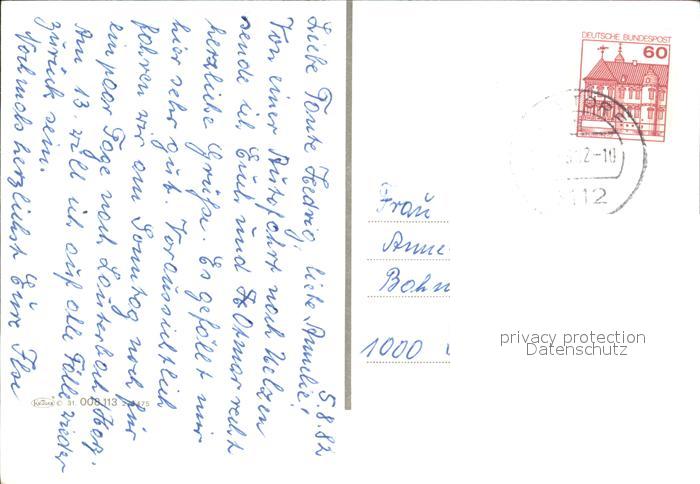 5.8.82
Liebe Tante Hedwig, liebe Annelie!
Von einer Autofahrt nach Uelzen
sende ich Euch und Otmar recht
herzliche Grüße. Es gefällt mir
hier sehr gut. Voraussichtlich
fahren wir am Sonntag noch für
ein paar Tage nach Lauterbach
Am 13. will ich auf alle Fälle wieder
zurück sein.
Nochmals herzlichst Eure
31. 008 113
DEUTSCHE BUNDESPOST
60
2-10
112
Frau
Anne
Bohn
1000
privacy protection
Datenschutz